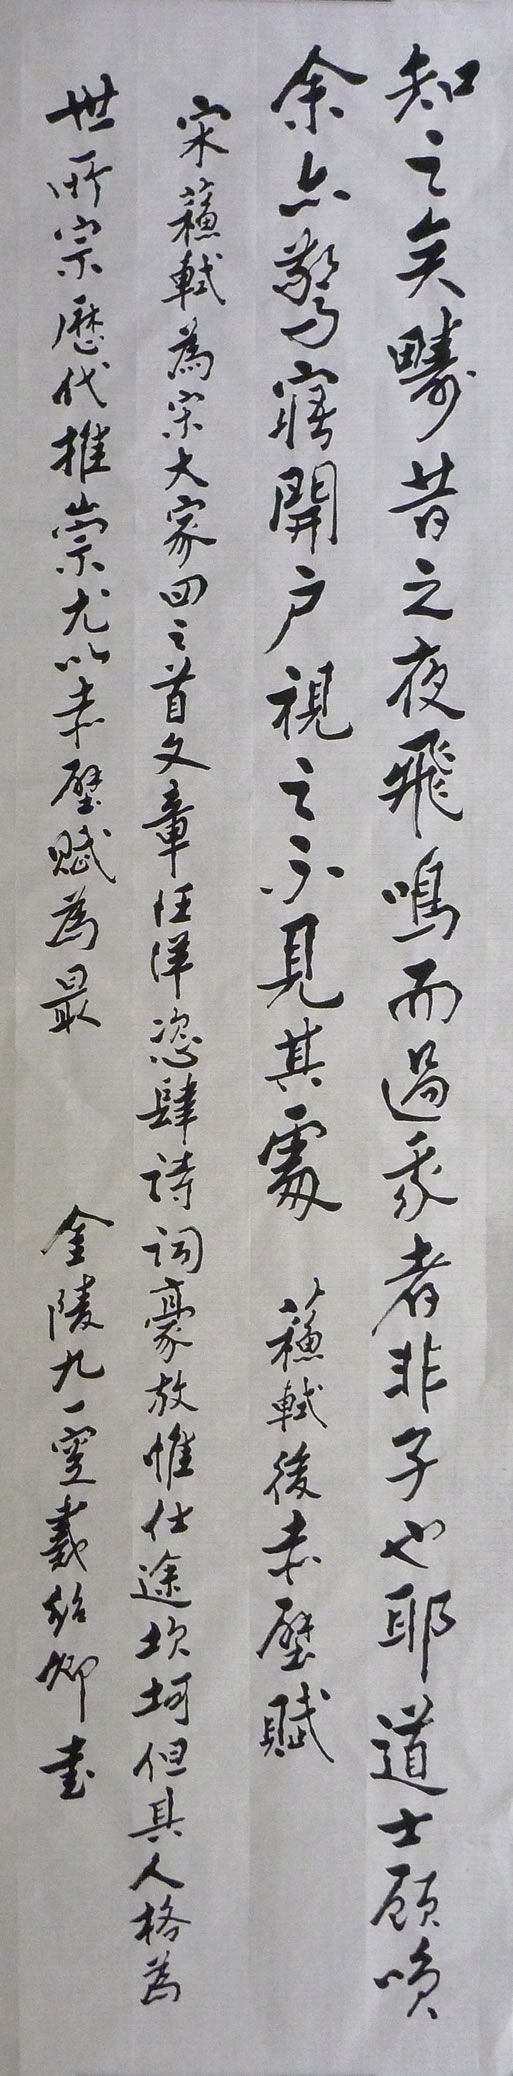 知之矣疇昔之夜飛鳴而過我者非子也耶道士顧喚
余亦驚寤開戶視之不見其處 蘇軾後赤壁賦
宋蘇軾為宋大家四之首文章汪洋恣肆詩詞豪放惟仕途坎坷但其人格為
世所宗歷代推崇尤以赤壁賦為最 金陵九一叟戴紹卿書